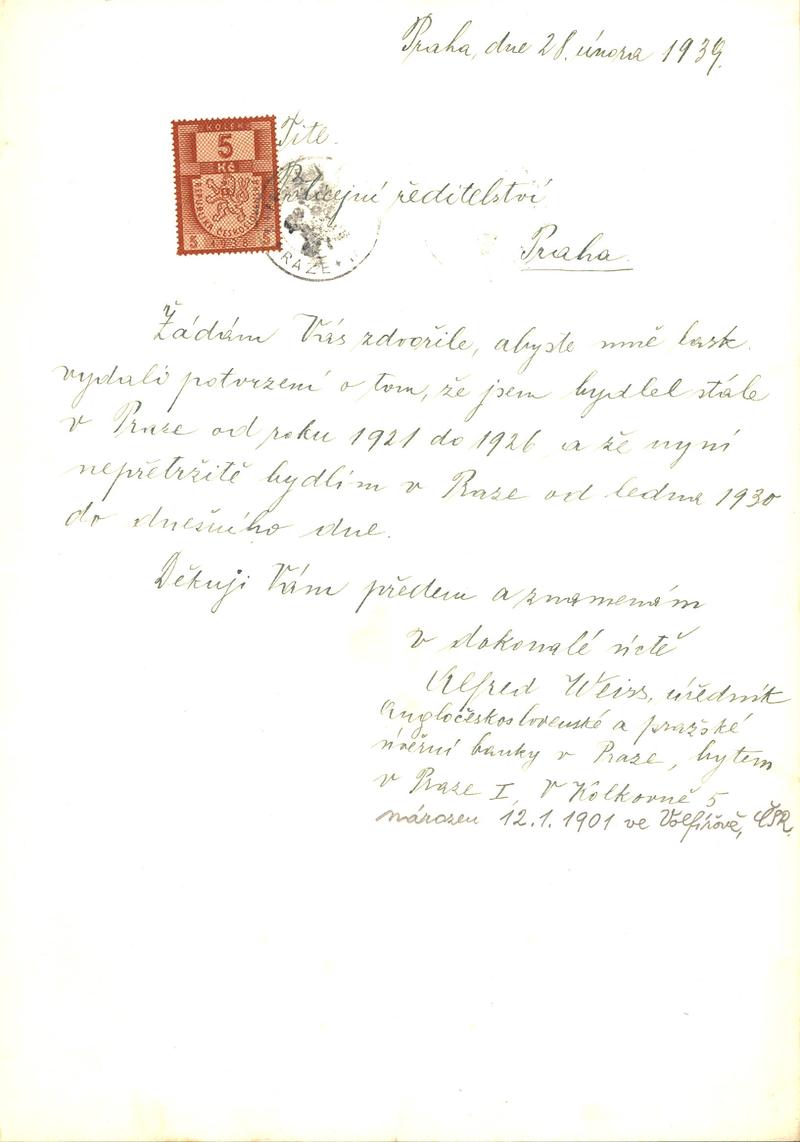 Praha, dne 28. února 1939.
KOLEK
5
Kč
REPUBLIKA ČESKOSLOVENSKÁ
5 5
Tit.
Policejní ředitelství
Praha.
PRAZE
Žádám Vás zdvořile, abyste mně lask.
vydali potvrzení o tom, že jsem bydlel stále
v Praze od roku 1921 do 1926 a že nyní
nepřetržitě bydlím v Praze od ledna 1930
do dnešního dne.
Děkuji Vám předem a znamenám
v dokonalé úctě
Alfred Weiss, úředník
Angločeskoslovenské a pražské
úvěrní banky v Praze, bytem
v Praze I, V Kolkovně 5
narozen 12.1.1901 ve Volfířově, ČSR.